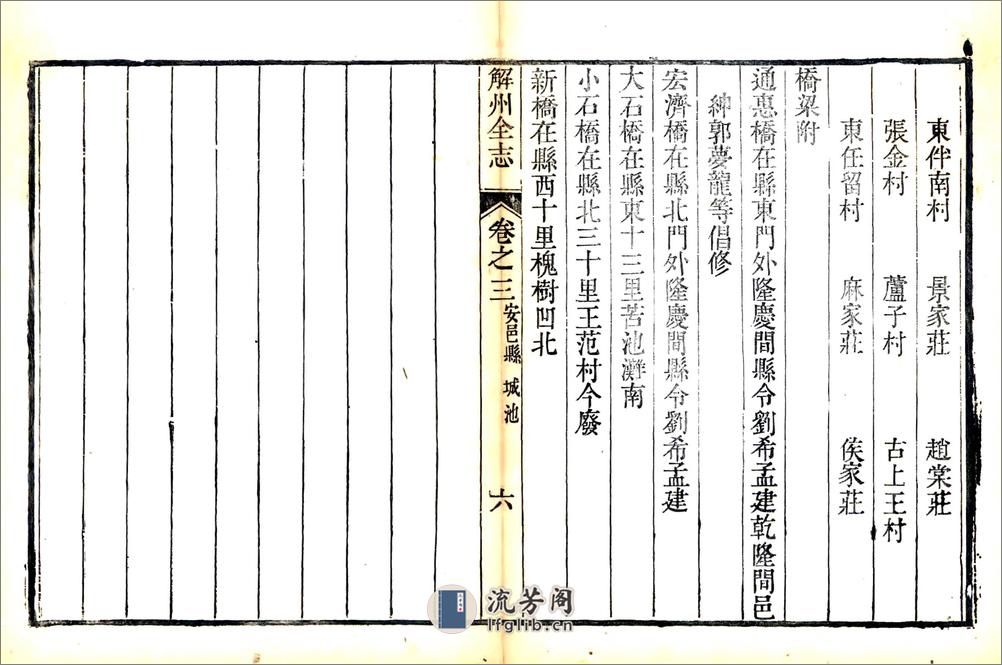 東作南村　景家莊　趙棠莊
張金村　蘆子村　古上王村
東任留村　麻家莊　侯家莊
橋梁附
通惠橋在縣東門外隆慶間縣令劉希孟建乾隆間邑
紳郭夢龍等倡修
宏濟橋在縣北門外隆慶間縣令劉希孟建
大石橋在縣東十三里苦池灘南
小石橋在縣北三十里王范村今廢
新橋在縣西十里槐樹凹北
解州全志　卷之三　安邑縣　城池　六
流芳阁
lfglib.cn